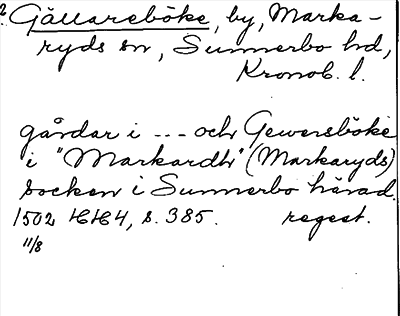 2. Gällareböke, by, Marka-
ryds sn, Sunnerbo hd,
Kronob. l.
gårdar i --- och Gewersböke
i "Markardh" (Markaryds)
socken i Sunnerbo härad.
1502 HH4, s. 385. regest.
11/8